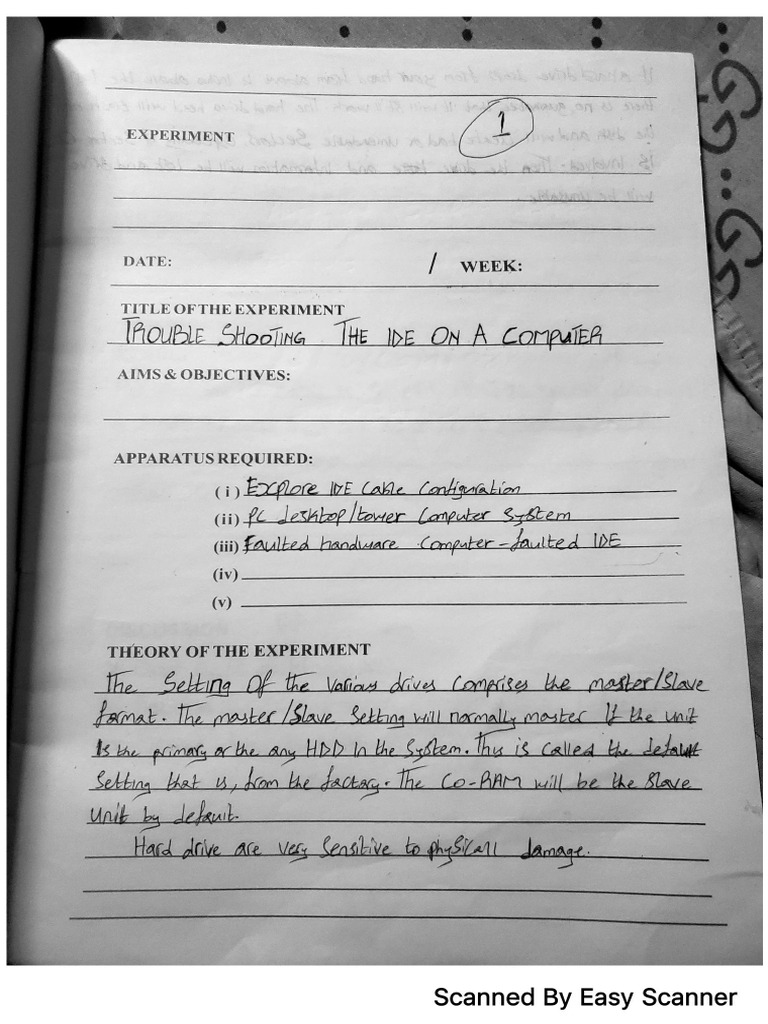 EXPERIMENT
1
DATE: / WEEK:
TITLE OF THE EXPERIMENT
TROUBLE SHOOTING THE IDE ON A COMPUTER
AIMS & OBJECTIVES:
APPARATUS REQUIRED:
(i) Explore IDE Cable Configuration
(ii) PC desktop/tower Computer System
(iii) Faulted hardware Computer-faulted IDE
(iv)
(v)
THEORY OF THE EXPERIMENT
The Setting Of the Various drives Comprises the master/Slave
format. The master/Slave Setting will normally master If the unit
Is the primary or the any HDD In the System. This is Called the default
Setting that is, from the factory. The CO-RAM will be the Slave
Unit by default.
Hard drive are very Sensitive to physicall damage.
Scanned By Easy Scanner